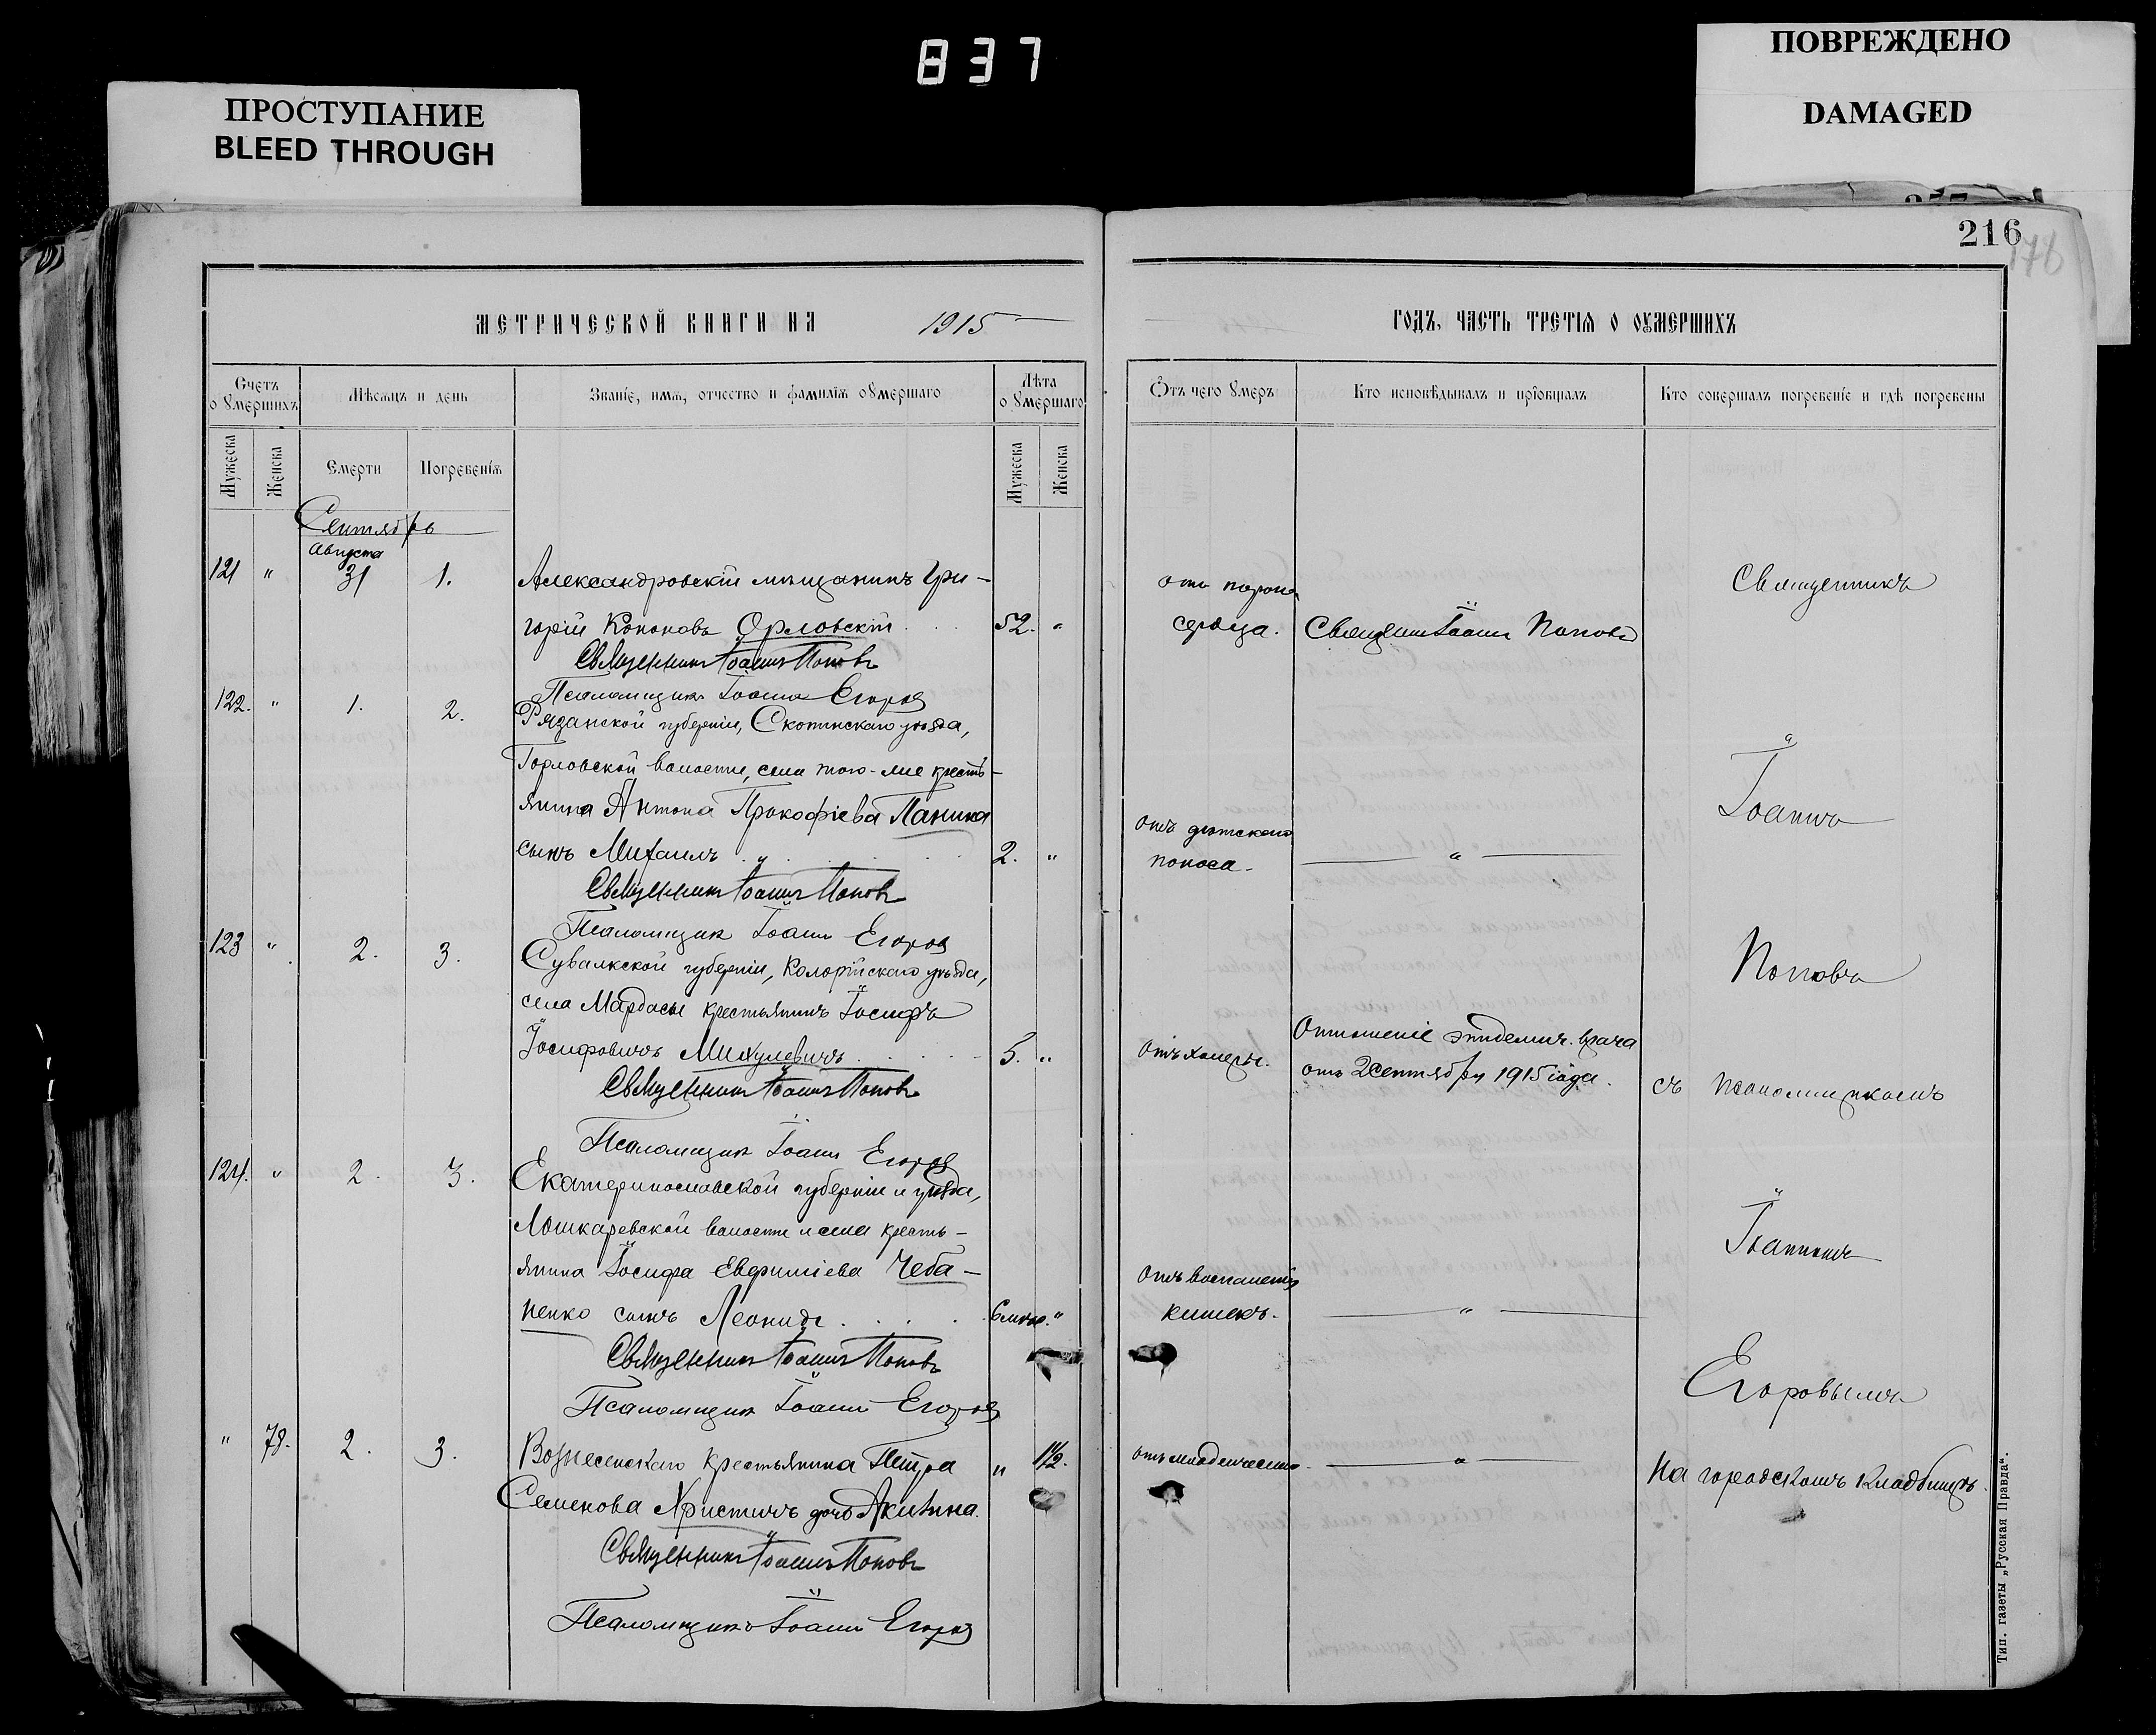 837
ПРОСТУПАНИЕ
BLEED THROUGH
ПОВРЕЖДЕНО
DAMAGED
216
МЕТРИЧЕСКОЙ КНИГИ НА 1915
ГОДЪ, ЧАСТЬ ТРЕТІѦ О ОУМЕРШИХЪ
Счетъ оумершихъ
Мѣсѧцъ и день
Званіе, имѧ, отчество и фамиліѧ оумершаго
Лѣта оумершаго
Ѿтъ чего умеръ
Кто исповѣдывалъ и пріобщалъ
Кто совершалъ погребеніе и гдѣ погребены
Мужеска
Женска
Смерти
Погребеніѧ
Мужеска
Женска
Сентябрь
Августа
121 " 31 1. Александровскій мѣщанинъ Гри-
горій Кононовъ Орловскій 52. "
отъ порока
сердца.
Священ. Іоаннъ Поповъ
Священникъ Іоаннъ Поповъ
Псаломщикъ Іоаннъ Егоровъ
122. " 1. 2. Рязанской губерніи, Скопинскаго уѣзда,
Горловской волости, села того-же кресть-
янина Антона Прокофіева Панина
сынъ Михаилъ 2. "
отъ дѣтскаго
поноса.
Священникъ Іоаннъ Поповъ
Псаломщикъ Іоаннъ Егоровъ
123 " 2. 3. Сувалкской губерніи, уѣзда,
села крестьянинъ Іосифъ
Іосифовичъ Михулевичъ 5. "
отъ холеры.
Отношеніе эпидемич. врача
отъ 2 Сентября 1915 года.
Священникъ Іоаннъ Поповъ
Псаломщикъ Іоаннъ Егоровъ
124. " 2. 3. Екатеринославской губерніи и уѣзда,
Лошкаревской волости и села кресть-
янина Іосифа Евфиміева Чеба-
ненко сынъ Леонидъ 6 мѣс. "
отъ воспаленія
кишекъ.
"
Священникъ Іоаннъ Поповъ
Псаломщикъ Іоаннъ Егоровъ
" 78. 2. 3. Вознесенскаго крестьянина Петра " 1½.
Семенова Христичъ дочь Акилина.
отъ младенческ.
"
Священникъ Іоаннъ Поповъ
Псаломщикъ Іоаннъ Егоровъ
Священникъ
Іоаннъ
Поповъ
съ псаломщикомъ
Іоанномъ
Егоровымъ
на городскомъ кладбищѣ.
Тип. газеты „Русская Правда“.